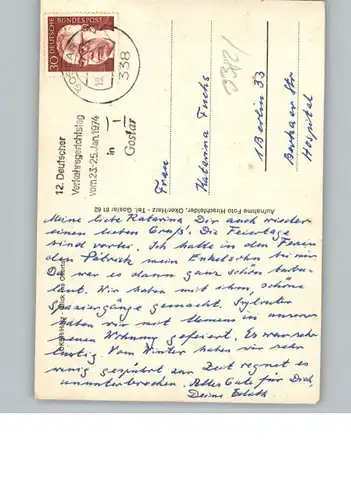 DEUTSCHE BUNDESPOST
30
338
12. Deutscher
Verkehrsgerichtstag
vom 23.-25. Jan. 1974
in
Goslar
Frau
Katarina Fuchs
1 Berlin 33
Hospital
Aufnahme Foto Hirschfelder, Oker/Harz - Tel. Goslar 61 62
Meine liebe Katarina Dir auch wieder
einen lieben Gruß. Die Feiertage
sind vorbei. Ich hatte in den Ferien
den Patrick mein Enkelsohn bei mir
Da war es dann ganz schön turbu-
lent. Wir haben mit ihm schöne
Spaziergänge gemacht. Sylvester
haben wir mit in unserer
neuen Wohnung gefeiert. Es war sehr
lustig. Vom Winter haben wir sehr
wenig gespührt zur Zeit regnet es
ununterbrochen. Alles Gute für Dich,
Deine